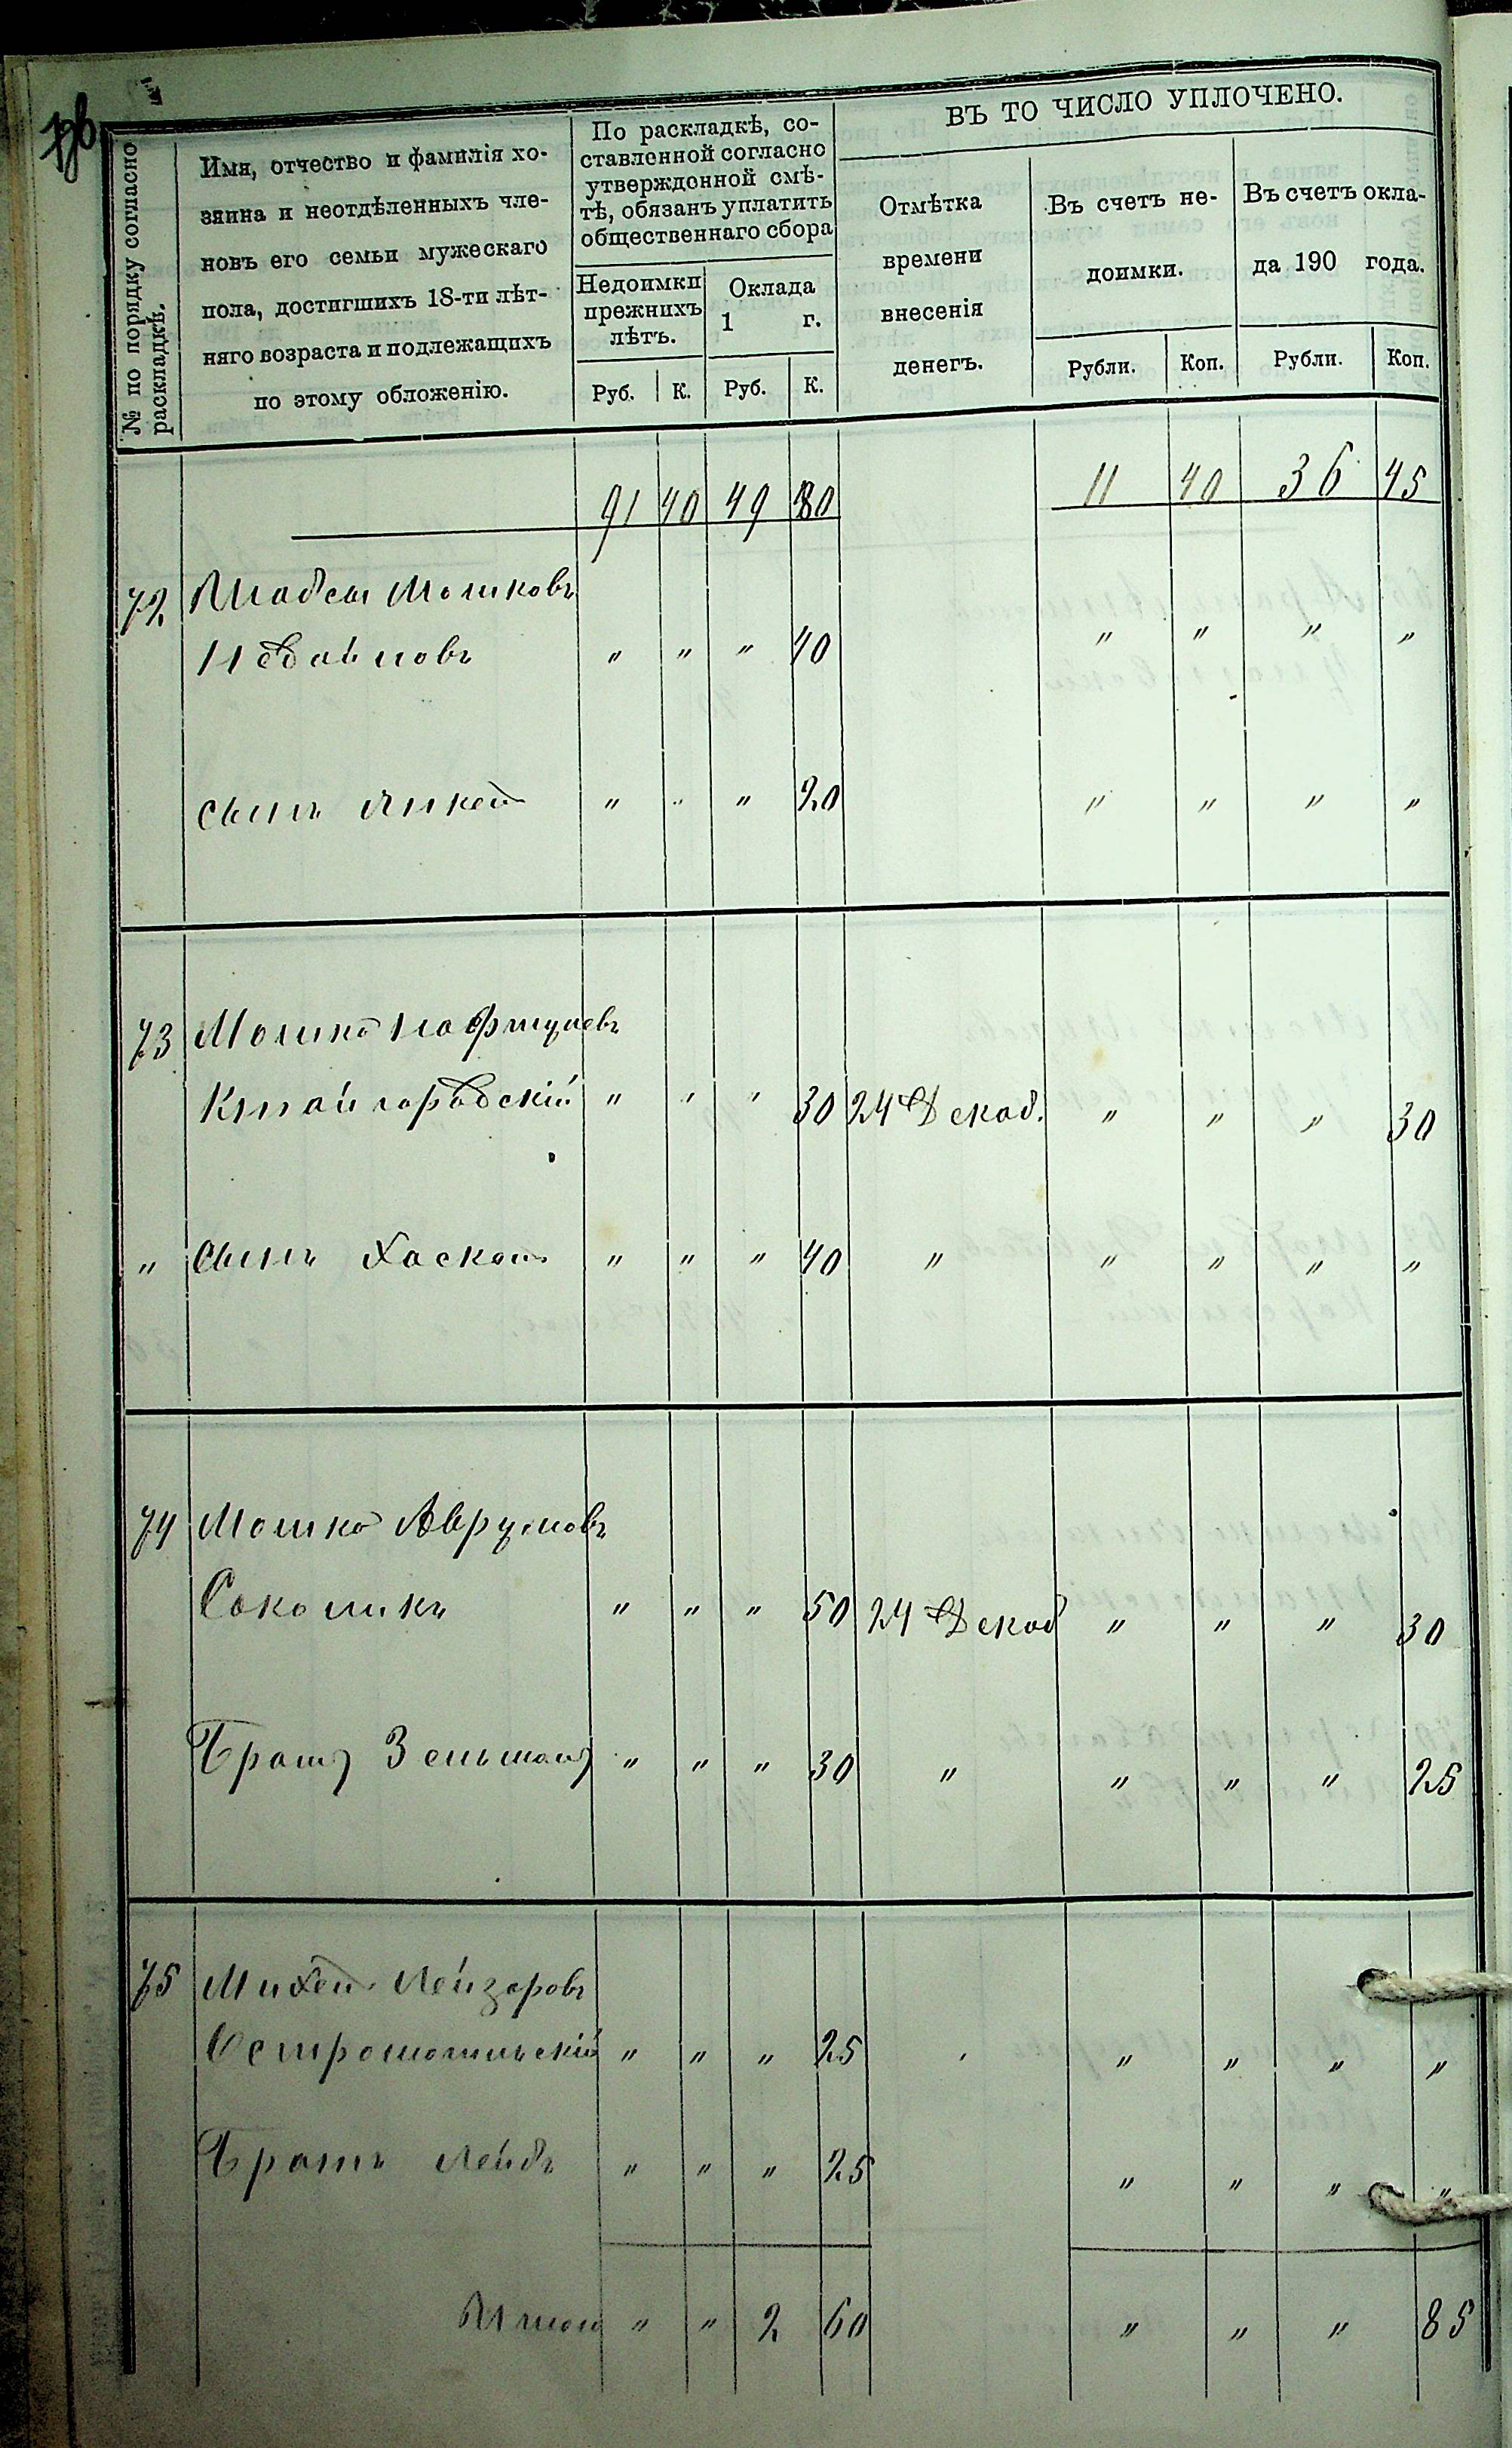 № по порядку согласно раскладкѣ.
Имя, отчество и фамилія хо-
зяина и неотдѣленныхъ чле-
новъ его семьи мужескаго
пола, достигшихъ 18-ти лѣт-
няго возраста и подлежащихъ
по этому обложенію.
По раскладкѣ, со-
ставленной согласно
утвержденной смѣ-
тѣ, обязанъ уплатить
общественнаго сбора
Недоимки
прежнихъ
лѣтъ.
Оклада
1 г.
Руб. К. Руб. К.
ВЪ ТО ЧИСЛО УПЛОЧЕНО.
Отмѣтка
времени
внесенія
денегъ.
Въ счетъ не-
доимки.
Въ счетъ окла-
да 190 года.
Рубли. Коп. Рубли. Коп.
91 40 49 80 11 40 36 45
72 Мошковъ
" " " 40 " " " "
сынъ " " " 20 " " " "
73 Мошко Нафтулевъ
Китайгородскій " " " 30 24 Декаб. " " " 30
" сынъ Хаскель " " " 40 " " " " "
74 Мошко Аврумовъ
Соколикъ " " " 50 24 Декаб " " " 30
Братъ Зельманъ " " " 30 " " " " 25
75 Михель Лейзеровъ
" " " 25 " " " "
Братъ Лейбъ " " " 25 " " " "
Итого " " 2 60 " " " 85